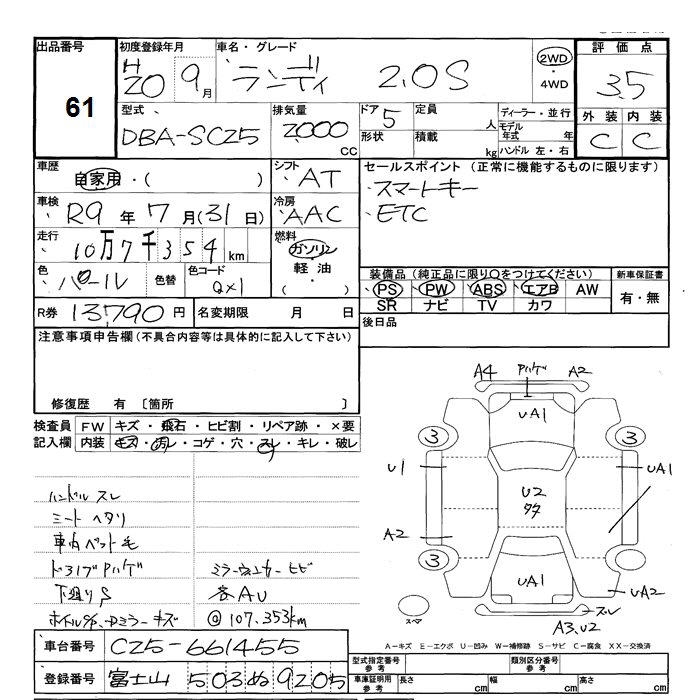 出品番号
61
初度登録年月
H20 9月
車名・グレード
ランディ 2.0S
2WD
・
4WD
評価点
3.5
外装 内装
C C
型式
DBA-SC25
排気量
2000
CC
ドア 5
形状
定員
人
積載
kg
ディーラー・並行
モデル年式 年
ハンドル 左・右
車歴
自家用・( )
シフト
AT
セールスポイント (正常に機能するものに限ります)
スマートキー
ETC
車検
R9年7月(31日)
冷房
AAC
走行
10万7千354km
燃料
ガソリン
軽油
・
( )
色
パール
色替
色コード
QX1
装備品 (純正品に限り○をつけてください)
PS PW ABS エアB AW
SR ナビ TV カワ
新車保証書
有・無
R券 13790円
名変期限 月 日
後日品
注意事項申告欄 (不具合内容等は具体的に記入して下さい)
修復歴 有 〔箇所 〕
検査員
記入欄
FW キズ・飛石・ヒビ割・リペア跡・×要
内装 キズ・汚レ・コゲ・穴・スレ・キレ・破レ
ハンドル スレ
シート ヘタリ
車内 ペット毛
ドライブPハゲ
下廻りS
ミラーウィンカー ヒビ
各AU
@107.353km
A4 Pハゲ A2
UA1
3 3
U1 UA1
U2
多
A2
3
UA1
UA2
スレ
A3.U2
スペア
A-キズ E-エクボ U-凹み W-補修跡 S-サビ C-腐食 XX-交換済
車台番号 C25-661455
登録番号 富士山 503 ぬ 9205
型式指定番号
参考
類別区分番号
参考
車庫証明用
参考
長さ cm
幅 cm
高さ cm